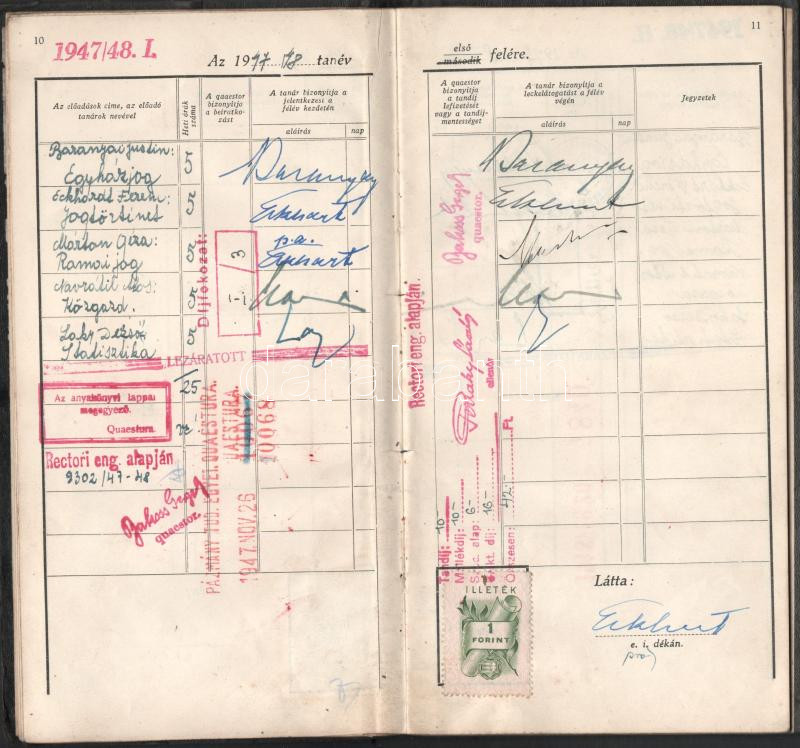 10
1947/48. I.
Az 1947/48 tanév
Az előadások címe, az előadó tanárok nevével
Heti órák száma
A quaestor bizonyítja a beiratkozást
A tanár bizonyítja a jelentkezést a félév kezdetén
aláírás
nap
Baranyai Jusztin:
Egyházjog
5
Baranyay
Eckhart Ferenc
Jogtörténet
5
Eckhart
Márton Géza:
Római jog
5
p.a.
Eckhart
Navratil Ákos:
Közgazd.
5
Laky Dezső
Statisztika
5
Díjfokozat:
I-I
3
LEZÁRATOTT
25
Az anyakönyvi lappal
megegyező.
Quaestura.
Rectori eng. alapján
9302/47-48
quaestor.
PÁZMÁNY TUD. EGYET. QUAESTURA.
1947.NOV.26
10068
11
első
második felére.
A quaestor bizonyítja a tandíj lefizetését vagy a tandíjmentességet
A tanár bizonyítja a leckelátogatást a félév végén
aláírás
nap
Jegyzetek
Baranyay
Eckhart
quaestor.
Rectori eng. alapján.
ellenőr
Tandíj: 10-
Mellékdíj: 10-
Szoc. alap: 6-
díj: 16-
Összesen: 42.- Ft
ILLETÉK
1
FORINT
Látta:
Eckhart
e. i. dékán.
darabanth